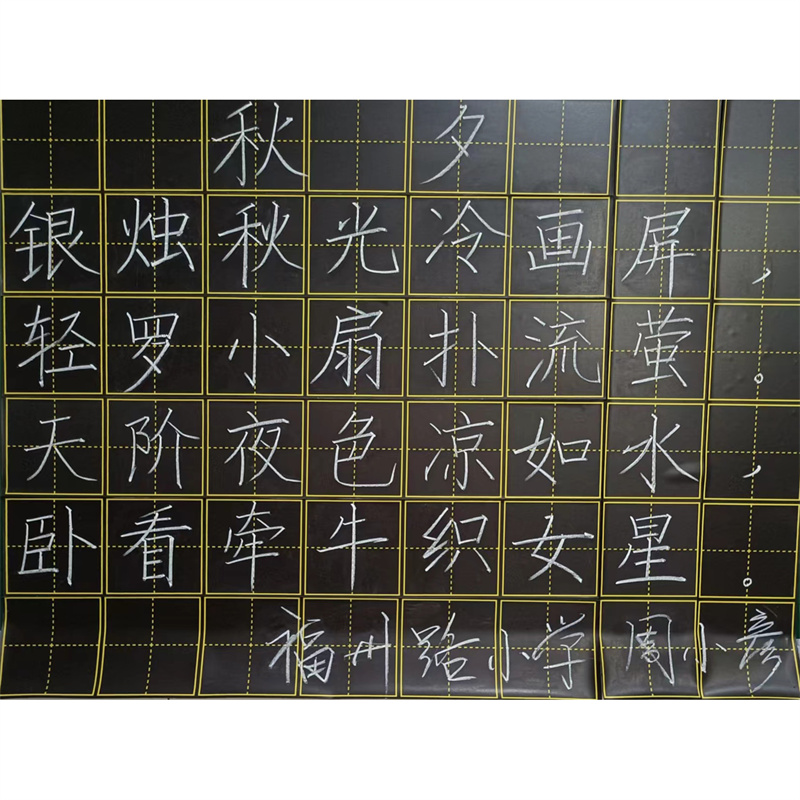 秋夕
银烛秋光冷画屏，
轻罗小扇扑流萤。
天阶夜色凉如水，
卧看牵牛织女星。
福州路小学周小彦